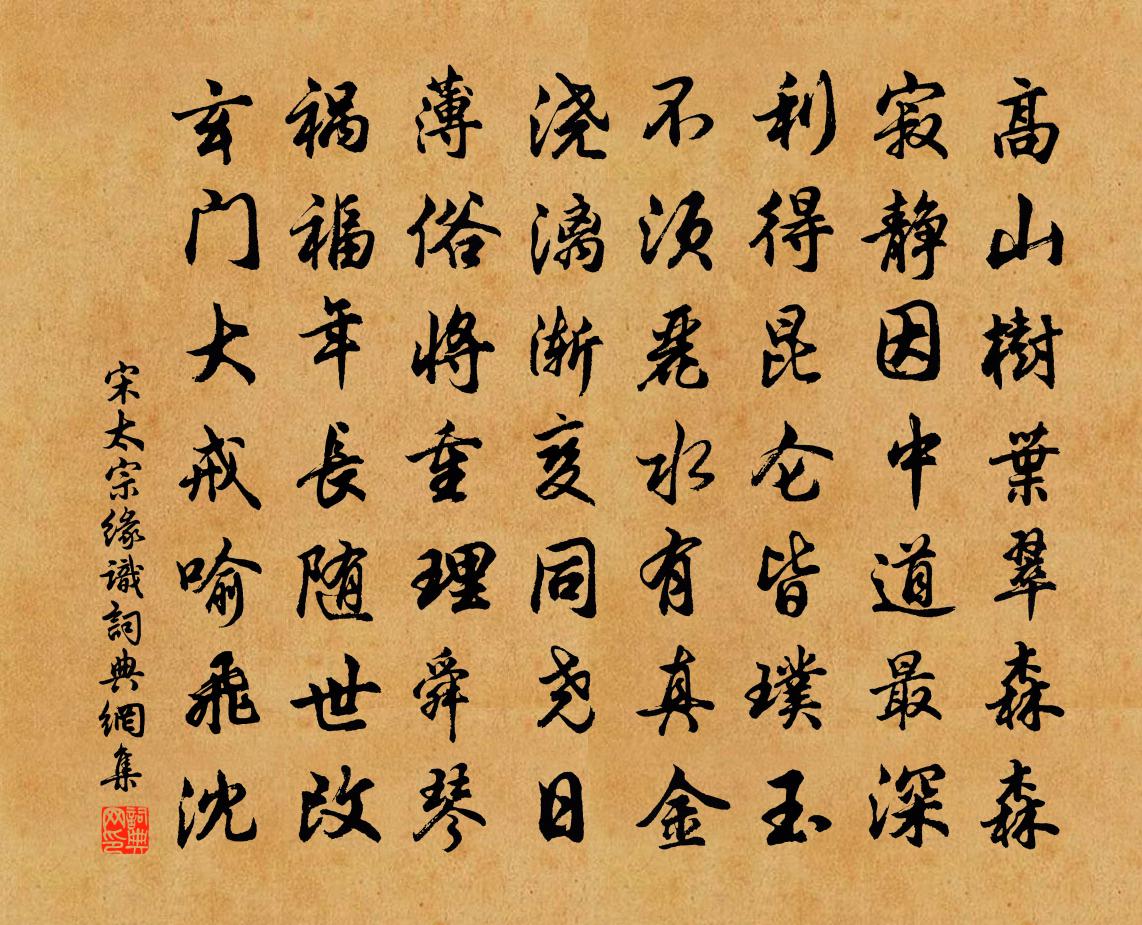 高山樹葉翠森森
寂静因中道最深
利得昆仑皆璞玉
不须麗水有真金
浇漓渐变同尧日
薄俗将重理舜琴
祸福年長随世改
玄门大戒喻飛沈
宋太宗緣識詞典網集
詞典网印